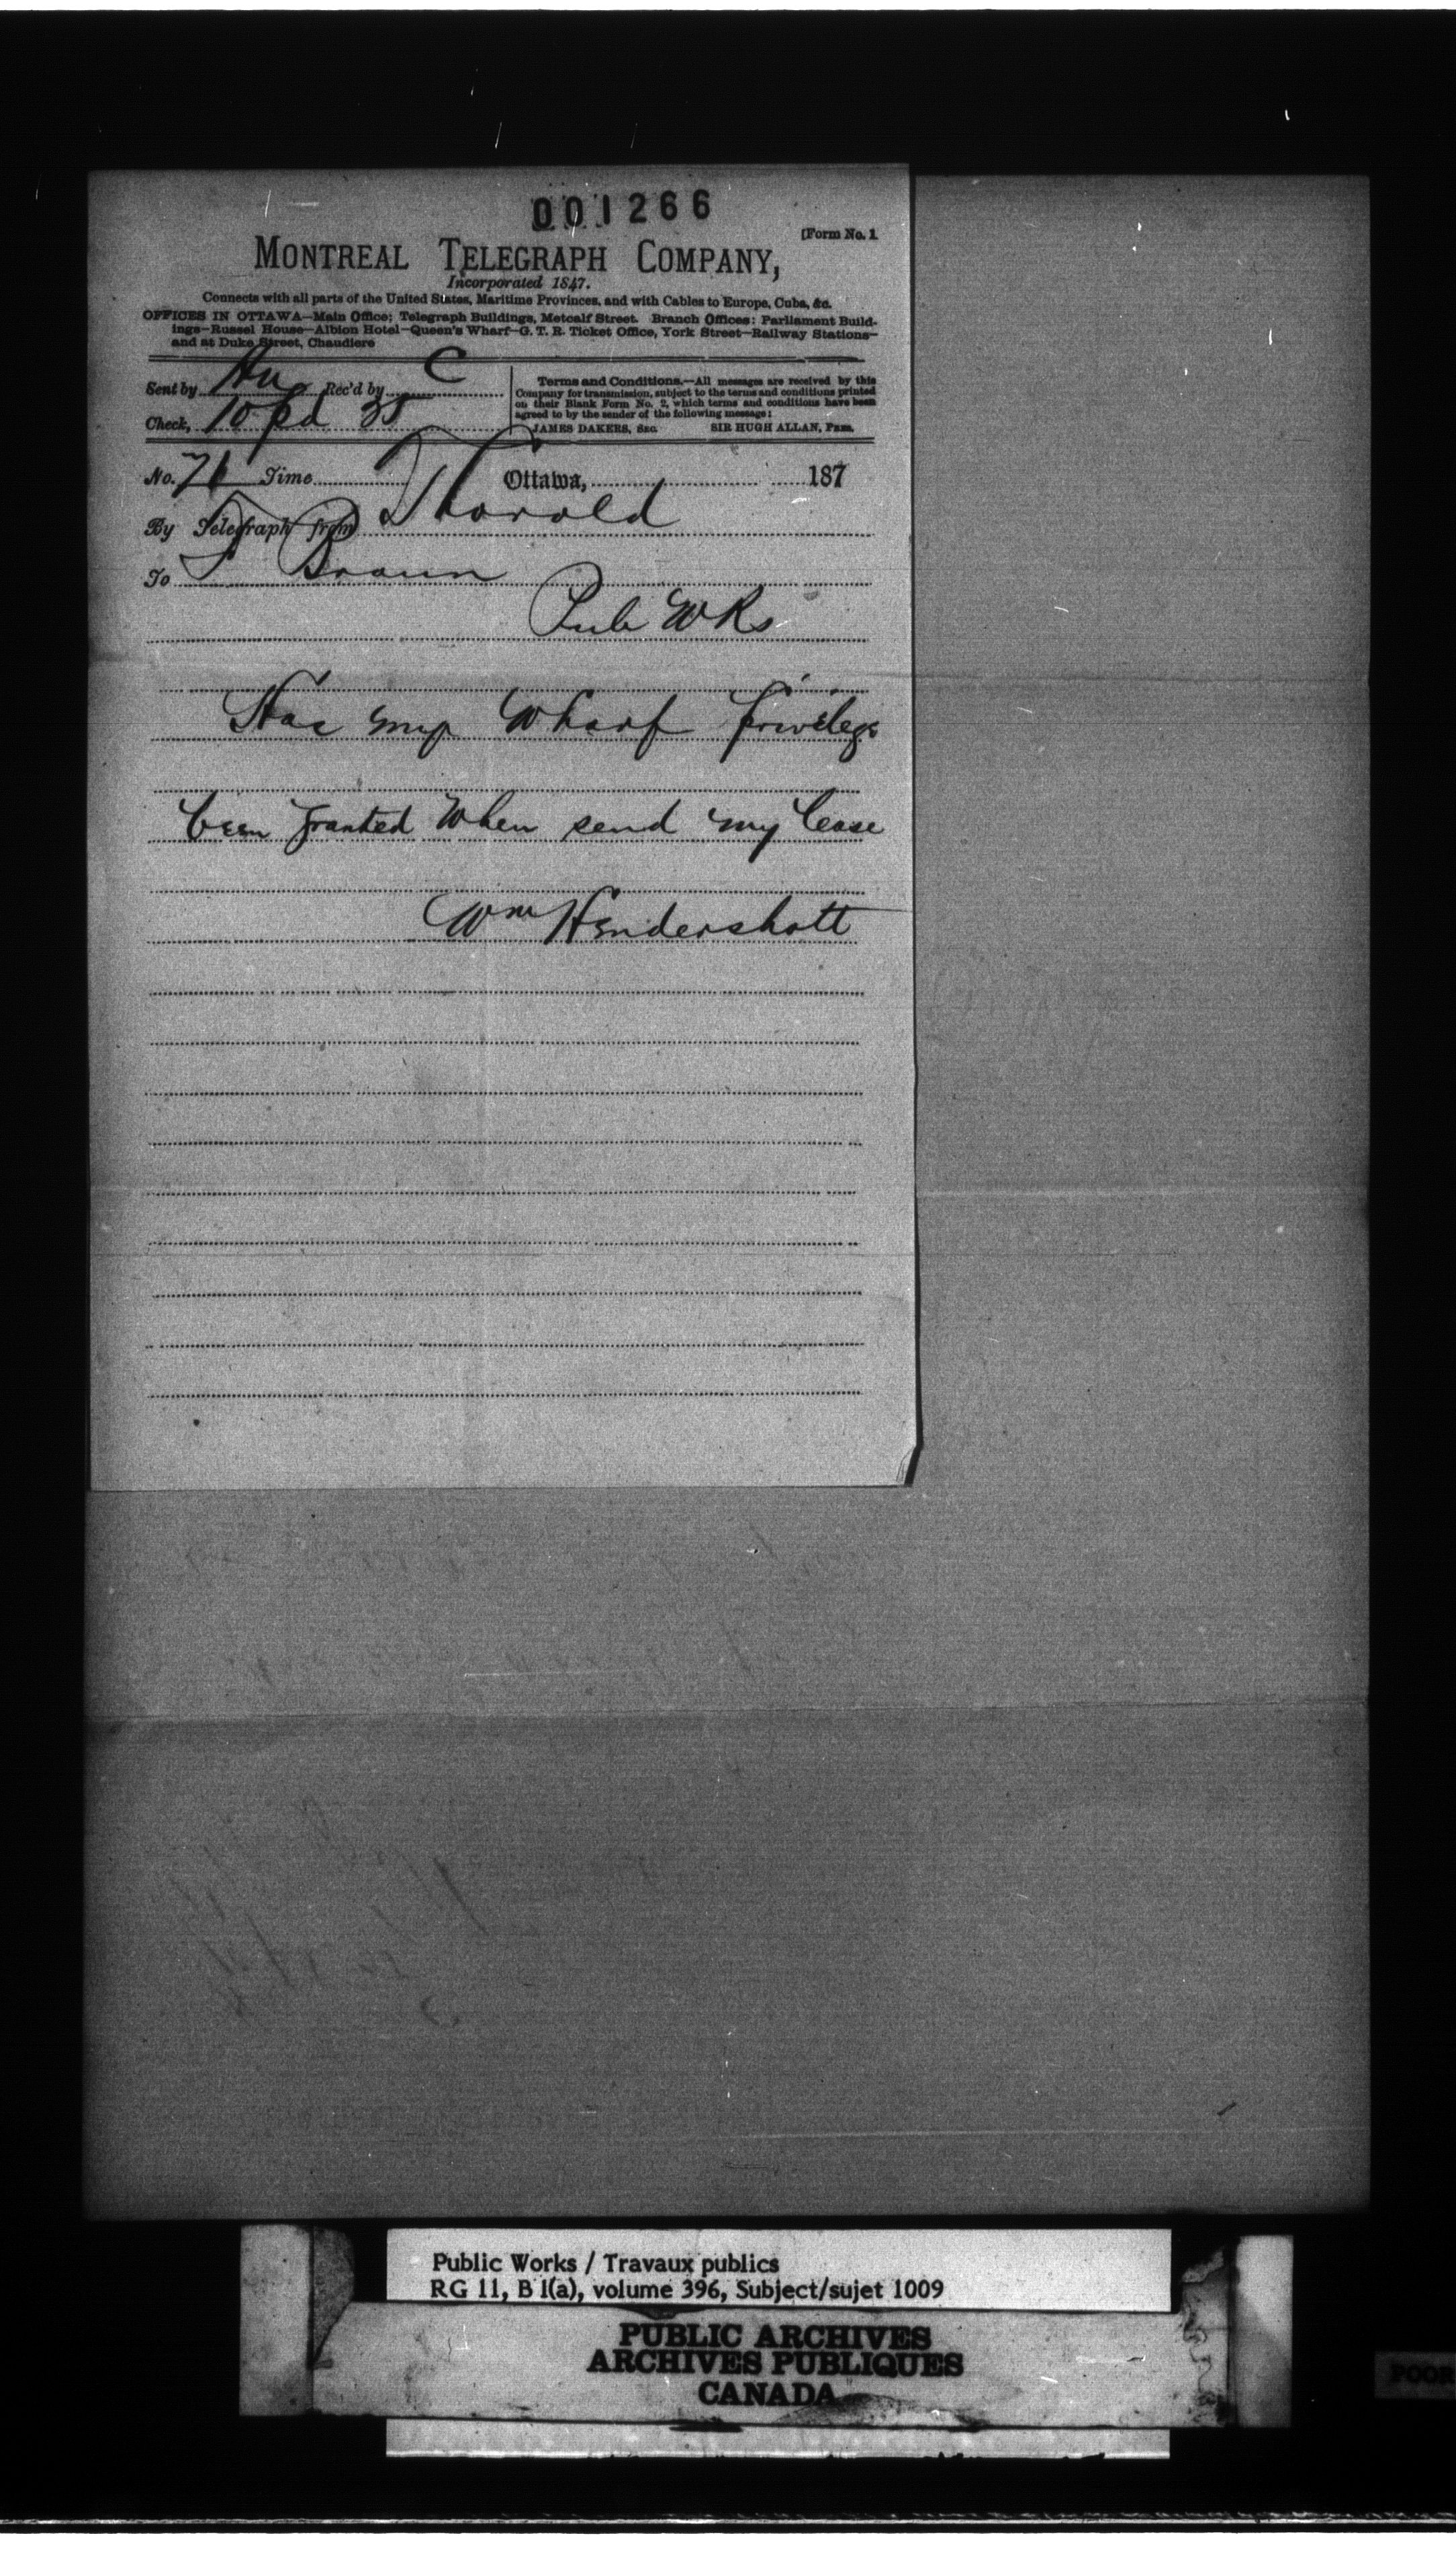 001266
[Form No. 1
MONTREAL TELEGRAPH COMPANY,
Incorporated 1847.
Connects with all parts of the United States, Maritime Provinces, and with Cables to Europe, Cuba, &c.
OFFICES IN OTTAWA—Main Office; Telegraph Buildings, Metcalf Street. Branch Offices: Parliament Build-
ings—Russel House—Albion Hotel—Queen's Wharf—G. T. R. Ticket Office, York Street—Railway Stations—
and at Duke Street, Chaudiere
Sent by Rec'd by C
Check, 10 pd 35
Terms and Conditions.—All messages are received by this
Company for transmission, subject to the terms and conditions printed
on their Blank Form No. 2, which terms and conditions have been
agreed to by the sender of the following message:
JAMES DAKERS, Sec. SIR HUGH ALLAN, Pres.
No. 71 Time Ottawa, 187
By Telegraph from Thorold
To F Braun
Pub WKs
Has my Wharf privilege
been granted When send my lease
Wm Hendershott
Public Works / Travaux publics
RG 11, B 1(a), volume 396, Subject/sujet 1009
PUBLIC ARCHIVES
ARCHIVES PUBLIQUES
CANADA